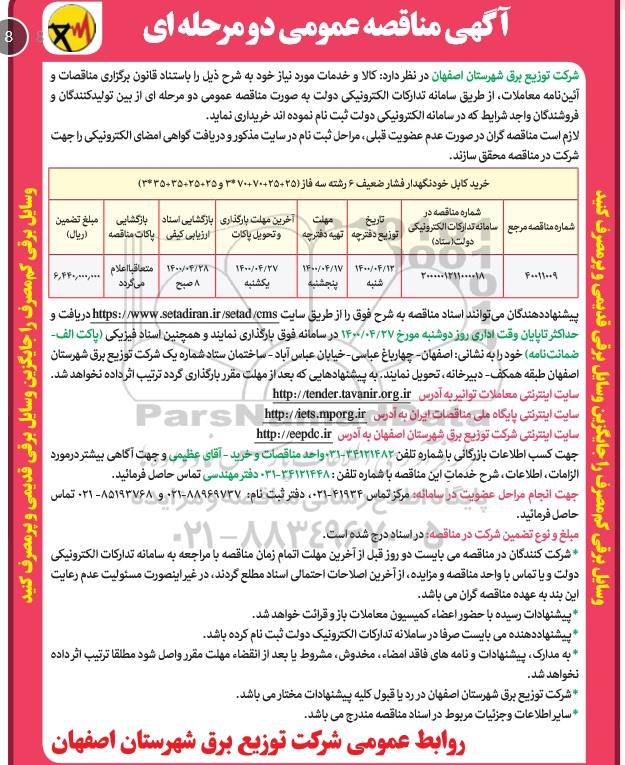 آگهی مناقصه عمومی دو مرحله ای
8
شرکت توزیع برق شهرستان اصفهان در نظر دارد: کالا و خدمات مورد نیاز خود به شرح ذیل را باستناد قانون برگزاری مناقصات و
آئین‌نامه معاملات، از طریق سامانه تدارکات الکترونیکی دولت به صورت مناقصه عمومی دو مرحله ای از بین تولیدکنندگان و
فروشندگان واجد شرایط که در سامانه الکترونیکی دولت ثبت نام نموده اند خریداری نماید.
لازم است مناقصه گران در صورت عدم عضویت قبلی، مراحل ثبت نام در سایت مذکور و دریافت گواهی امضای الکترونیکی را جهت
شرکت در مناقصه محقق سازند.
خرید کابل خودنگهدار فشار ضعیف ۶ رشته سه فاز (۲۵+۲۵+۷۰+۷۰*۳ و ۲۵+۲۵+۳۵+۳۵*۳)
شماره مناقصه مرجع
شماره مناقصه در سامانه تدارکات الکترونیکی دولت (ستاد)
تاریخ توزیع دفترچه
مهلت تهیه دفترچه
آخرین مهلت بارگذاری و تحویل پاکات
بازگشایی اسناد ارزیابی کیفی
بازگشایی پاکات مناقصه
مبلغ تضمین (ریال)
۴۰۰۱۱۰۰۹
۲۰۰۰۰۰۱۲۱۱۰۰۰۰۱۸
۱۴۰۰/۰۴/۱۲ شنبه
۱۴۰۰/۰۴/۱۷ پنجشنبه
۱۴۰۰/۰۴/۲۷ یکشنبه
۱۴۰۰/۰۴/۲۸ ۸ صبح
متعاقبا اعلام می‌گردد
۶,۴۴۰,۰۰۰,۰۰۰
پیشنهاددهندگان می‌توانند اسناد مناقصه به شرح فوق را از طریق سایت https://www.setadiran.ir/setad/cms دریافت و
حداکثر تا پایان وقت اداری روز دوشنبه مورخ ۱۴۰۰/۰۴/۲۷ در سامانه فوق بارگذاری نمایند و همچنین اسناد فیزیکی (پاکت الف-
ضمانت‌نامه) خود را به نشانی: اصفهان- چهارباغ عباسی-خیابان عباس آباد - ساختمان ستاد شماره یک شرکت توزیع برق شهرستان
اصفهان طبقه همکف- دبیرخانه، تحویل نمایند. به پیشنهادهایی که بعد از مهلت مقرر بارگذاری گردد ترتیب اثر داده نخواهد شد.
سایت اینترنتی معاملات توانیر به آدرس http://tender.tavanir.org.ir
سایت اینترنتی پایگاه ملی مناقصات ایران به آدرس http://iets.mporg.ir
سایت اینترنتی شرکت توزیع برق شهرستان اصفهان به آدرس http://eepdc.ir
جهت کسب اطلاعات بازرگانی با شماره تلفن ۳۴۱۲۱۴۸۲-۰۳۱ واحد مناقصات و خرید - آقای عظیمی و جهت آگاهی بیشتر در مورد
الزامات، اطلاعات، شرح خدمات این مناقصه با شماره تلفن: ۳۴۱۲۱۴۴۸-۰۳۱ دفتر مهندسی تماس حاصل فرمائید.
جهت انجام مراحل عضویت در سامانه: مرکز تماس ۴۱۹۳۴-۰۲۱، دفتر ثبت نام: ۸۸۹۶۹۷۳۷-۰۲۱ و ۸۵۱۹۳۷۶۸-۰۲۱ تماس
حاصل فرمائید.
مبلغ و نوع تضمین شرکت در مناقصه: در اسناد درج شده است.
*شرکت کنندگان در مناقصه می بایست دو روز قبل از آخرین مهلت اتمام زمان مناقصه با مراجعه به سامانه تدارکات الکترونیکی
دولت و یا تماس با واحد مناقصه و مزایده، از آخرین اصلاحات احتمالی اسناد مطلع گردند، در غیر اینصورت مسئولیت عدم رعایت
این بند به عهده مناقصه گران می باشد.
*پیشنهادات رسیده با حضور اعضاء کمیسیون معاملات باز و قرائت خواهد شد.
*پیشنهاددهنده می بایست صرفا در سامانه تدارکات الکترونیک دولت ثبت نام کرده باشد.
*به مدارک، پیشنهادات و نامه های فاقد امضاء، مخدوش، مشروط یا بعد از انقضاء مهلت مقرر واصل شود مطلقا ترتیب اثر داده
نخواهد شد.
*شرکت توزیع برق شهرستان اصفهان در رد یا قبول کلیه پیشنهادات مختار می باشد.
*سایر اطلاعات وجزئیات مربوط در اسناد مناقصه مندرج می باشد.
روابط عمومی شرکت توزیع برق شهرستان اصفهان
وسایل برقی کم‌مصرف را جایگزین وسایل برقی قدیمی و پرمصرف کنید
وسایل برقی کم‌مصرف را جایگزین وسایل برقی قدیمی و پرمصرف کنید
ParsNamadData
۰۲۱-۸۸۳۴۹۶۷۰-۵